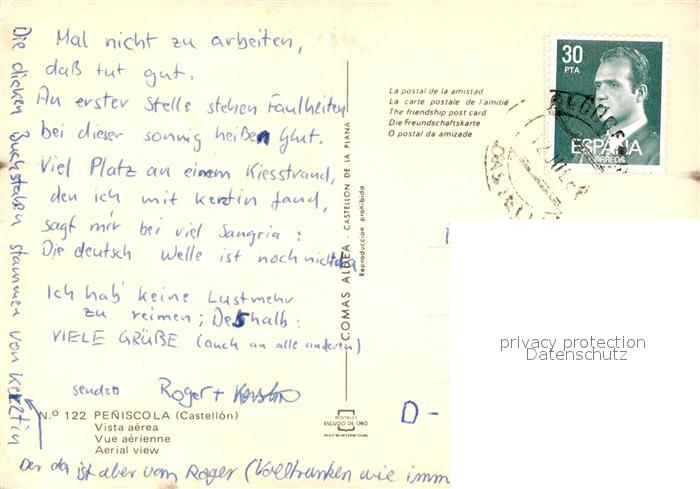 Mal nicht zu arbeiten,
daß tut gut.
An erster Stelle stehen Faulheiten
bei dieser sonnig heißen Glut.
Viel Platz an einem Kiesstrand,
den ich mit Kerstin fand,
sagt mir bei viel Sangria:
Die deutsch Welle ist noch nicht da
Ich hab' keine Lust mehr
zu reimen; Deshalb:
VIELE GRÜßE (auch an alle anderen)
senden Roger +
Die dicken Buchstaben stammen von Kerztin
Der da ist aber vom Roger (Volltrunken wie imm
N.º 122 PEÑISCOLA (Castellón)
Vista aérea
Vue aérienne
Aerial view
COMAS ALDEA · CASTELLON DE LA PLANA
Reproducción prohibida
POSTALES
ESCUDO DE ORO
La postal de la amistad
La carte postale de l'amitié
The friendship post card
Die Freundschaftskarte
O postal da amizade
30
PTA
ESPAÑA
CORREOS
D-
privacy protection
Datenschutz